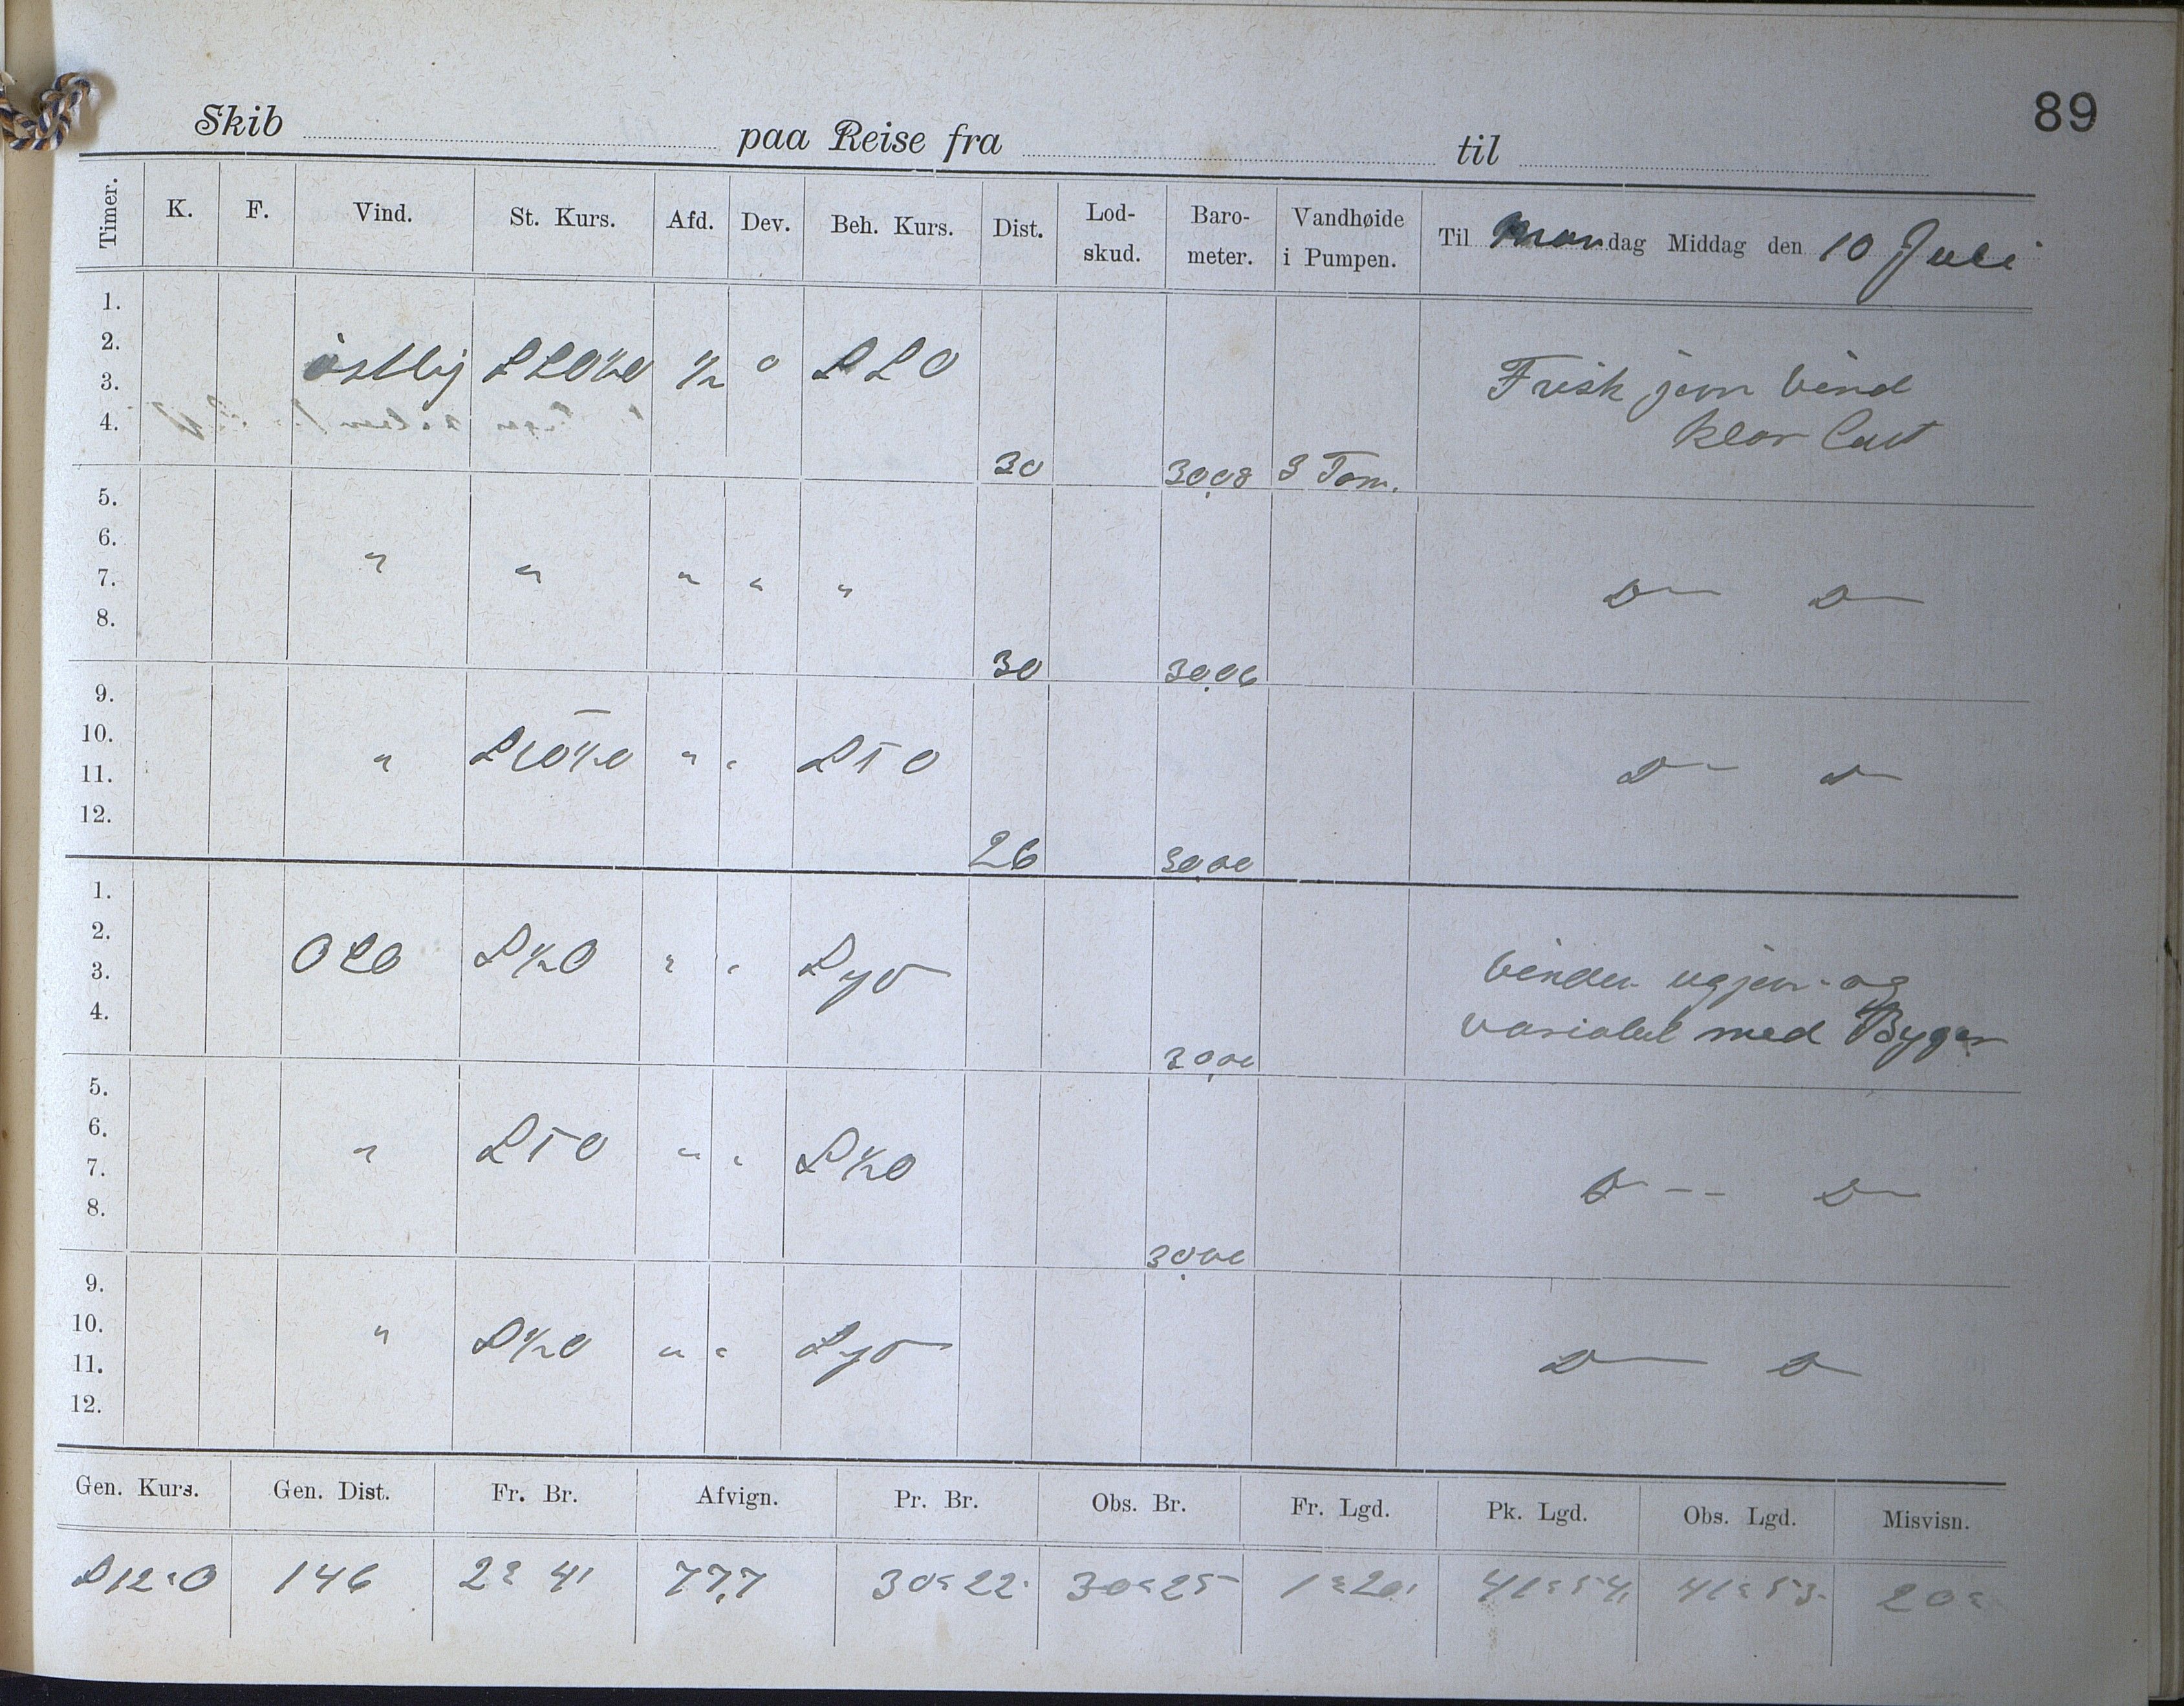 89
Skib paa Reise fra til
Timer. K. F. Vind. St. Kurs. Afd. Dev. Beh. Kurs. Dist. Lod-skud. Baro-meter. Vandhøide i Pumpen. Til Mandag Middag den 10 Juli
1.
2.
3. östlig SSO½O ½ 0 SSO Frisk jevn Vind
4. klar Luft
30 30,08 3 Tom.
5.
6.
7. " " " " " D— D—
8.
30 30,06
9.
10.
11. " " " StO D— D—
12.
26 30,00
1.
2.
3. OSO S½O " " Syd Vinden ugjevn og
4. variabel med Byger
30,00
5.
6.
7. " StO " " S½O D— D—
8.
30,00
9.
10.
11. " S½O " " Syd D— D—
12.
Gen. Kurs. Gen. Dist. Fr. Br. Afvign. Pr. Br. Obs. Br. Fr. Lgd. Pk. Lgd. Obs. Lgd. Misvisn.
S12°O 146 2° 41 77,7 30° 22 30° 25 1° 20 41° 54 41° 53 20°